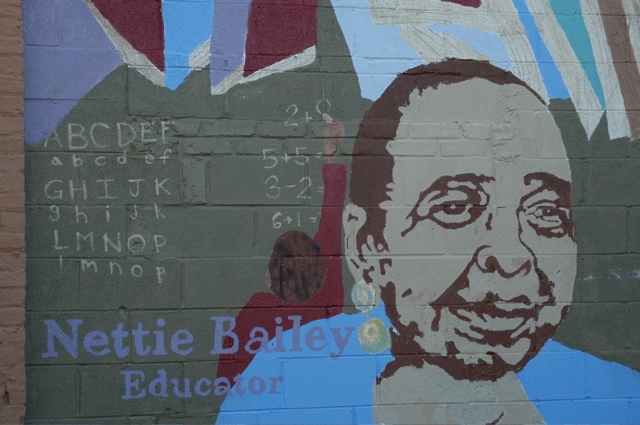 ABCDEF
abcdef
GHIJK
ghijk
LMNOP
lmnop
2+
5+5=
3-2=
6+1=
Nettie Bailey
Educator